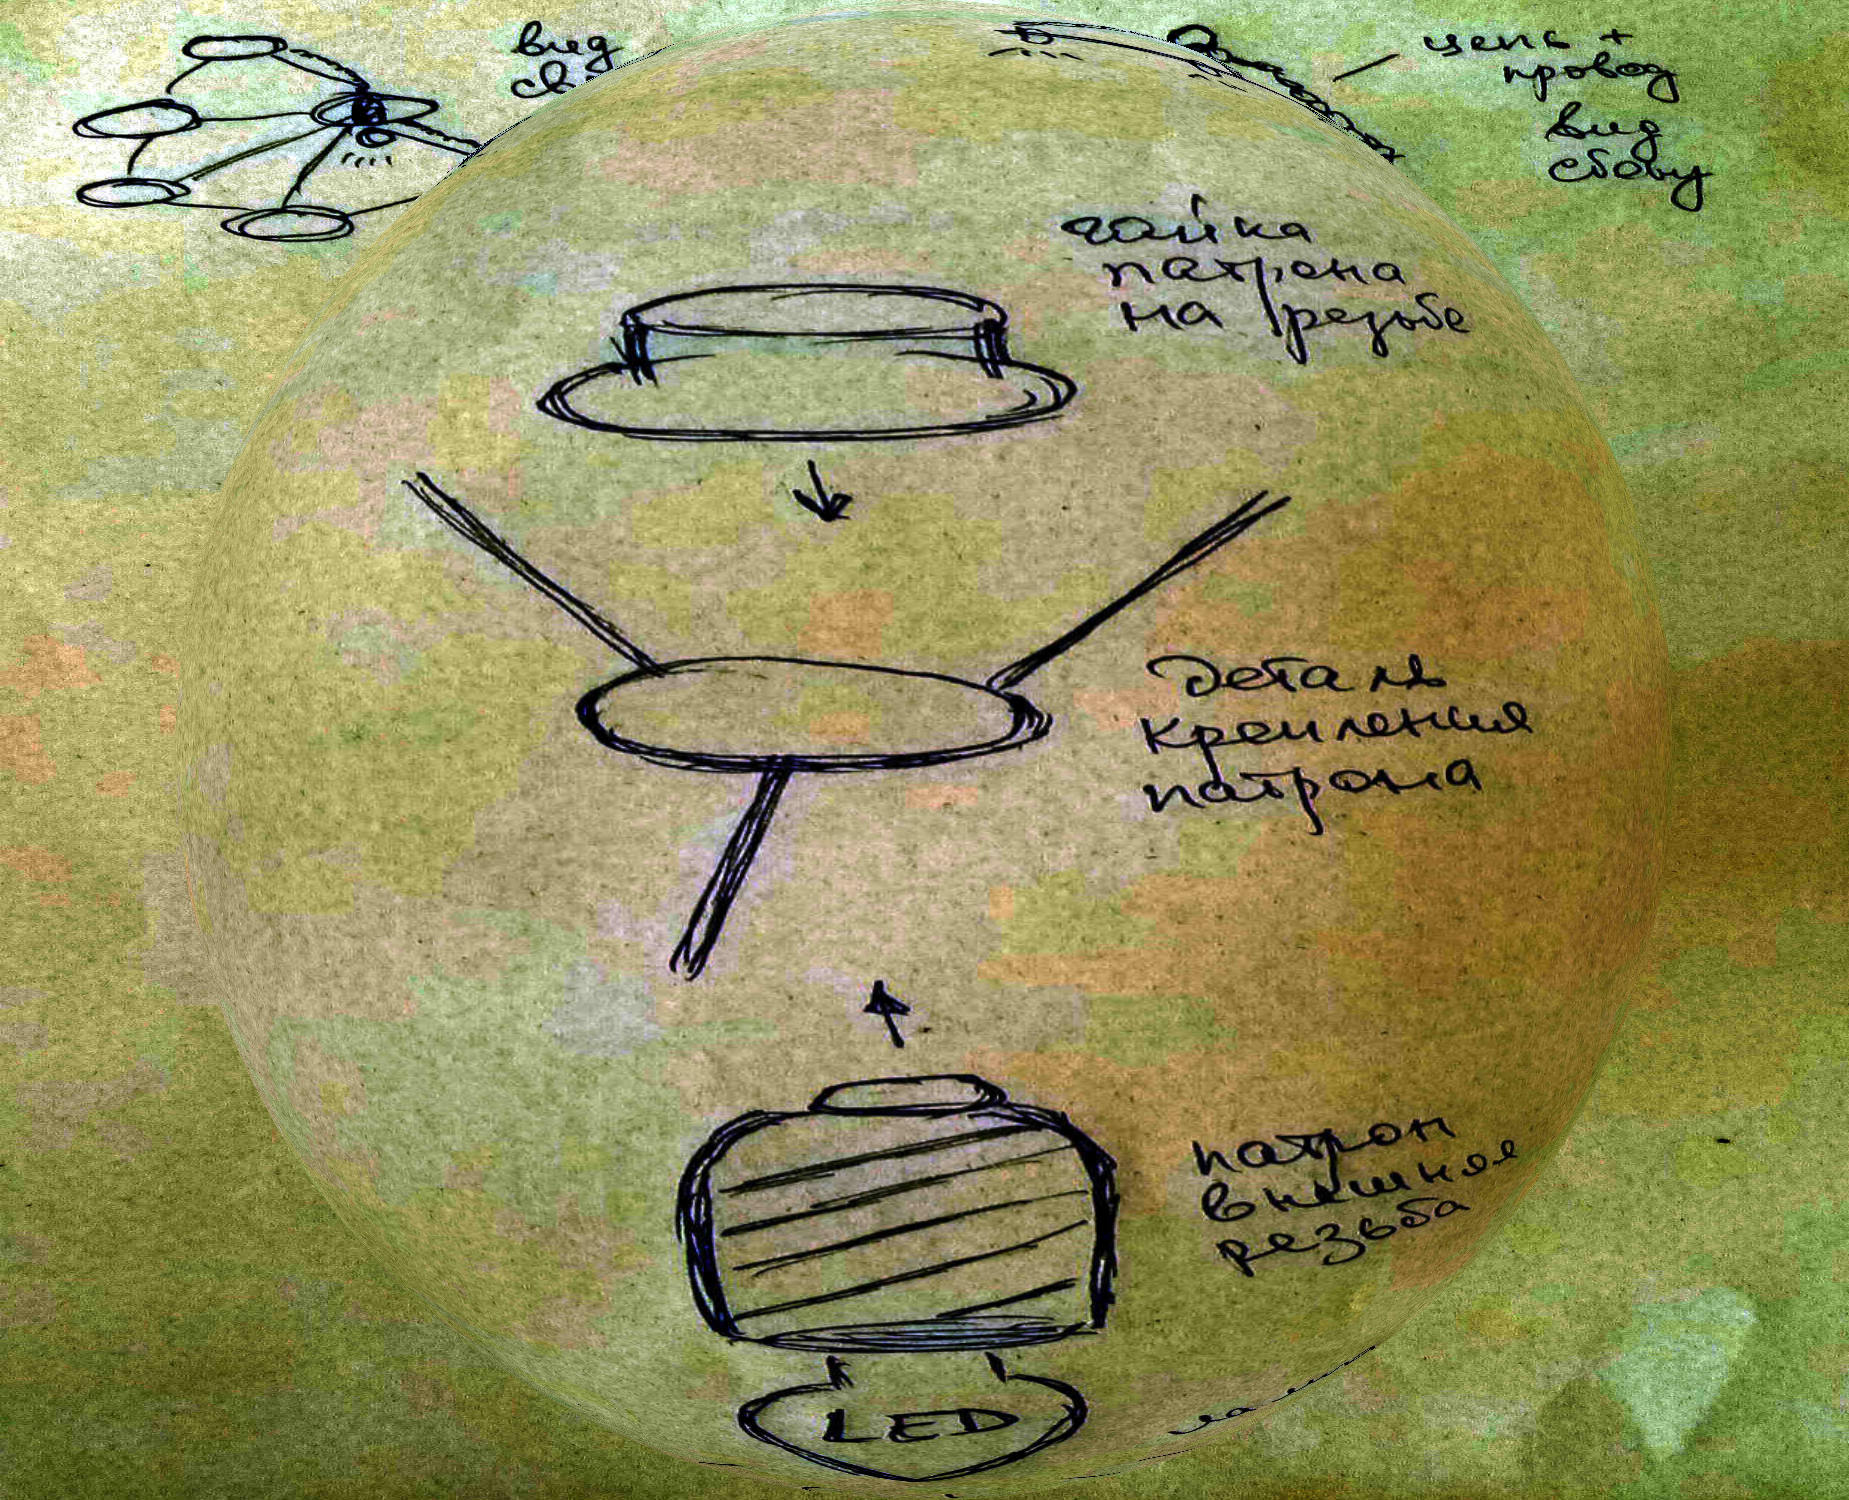 вид
цепь +
провод
вид
сбоку
гайка
патрона
на резьбе
деталь
крепления
патрона
патрон
внешняя
резьба
LED